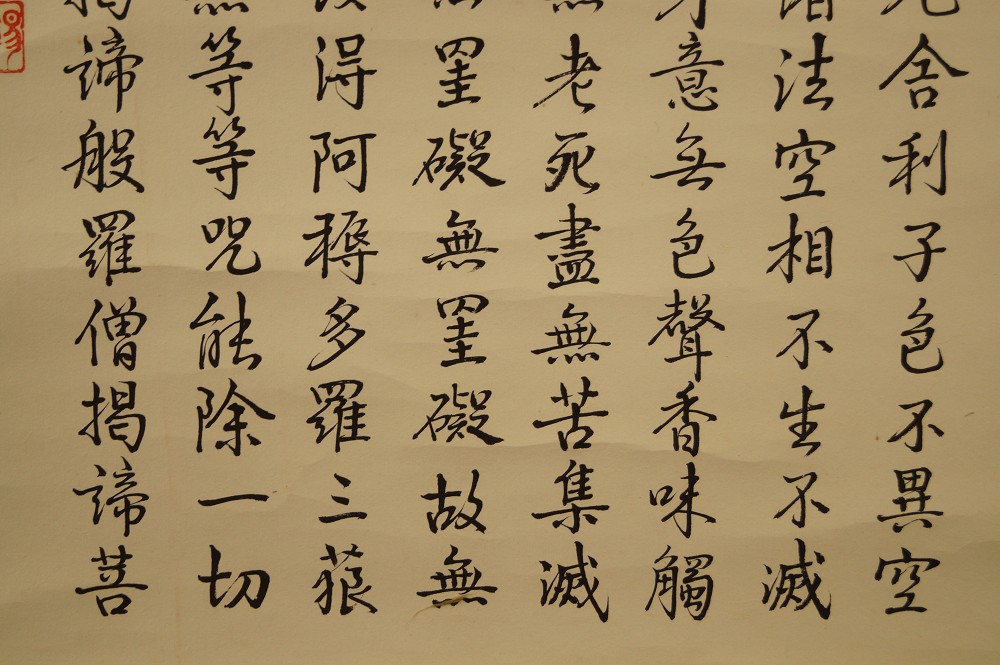 舍利子色不異空
法空相不生不滅
意無色聲香味觸
老死盡無苦集滅
罣礙無罣礙故無
得阿耨多羅三藐
等等咒能除一切
諦般羅僧揭諦菩